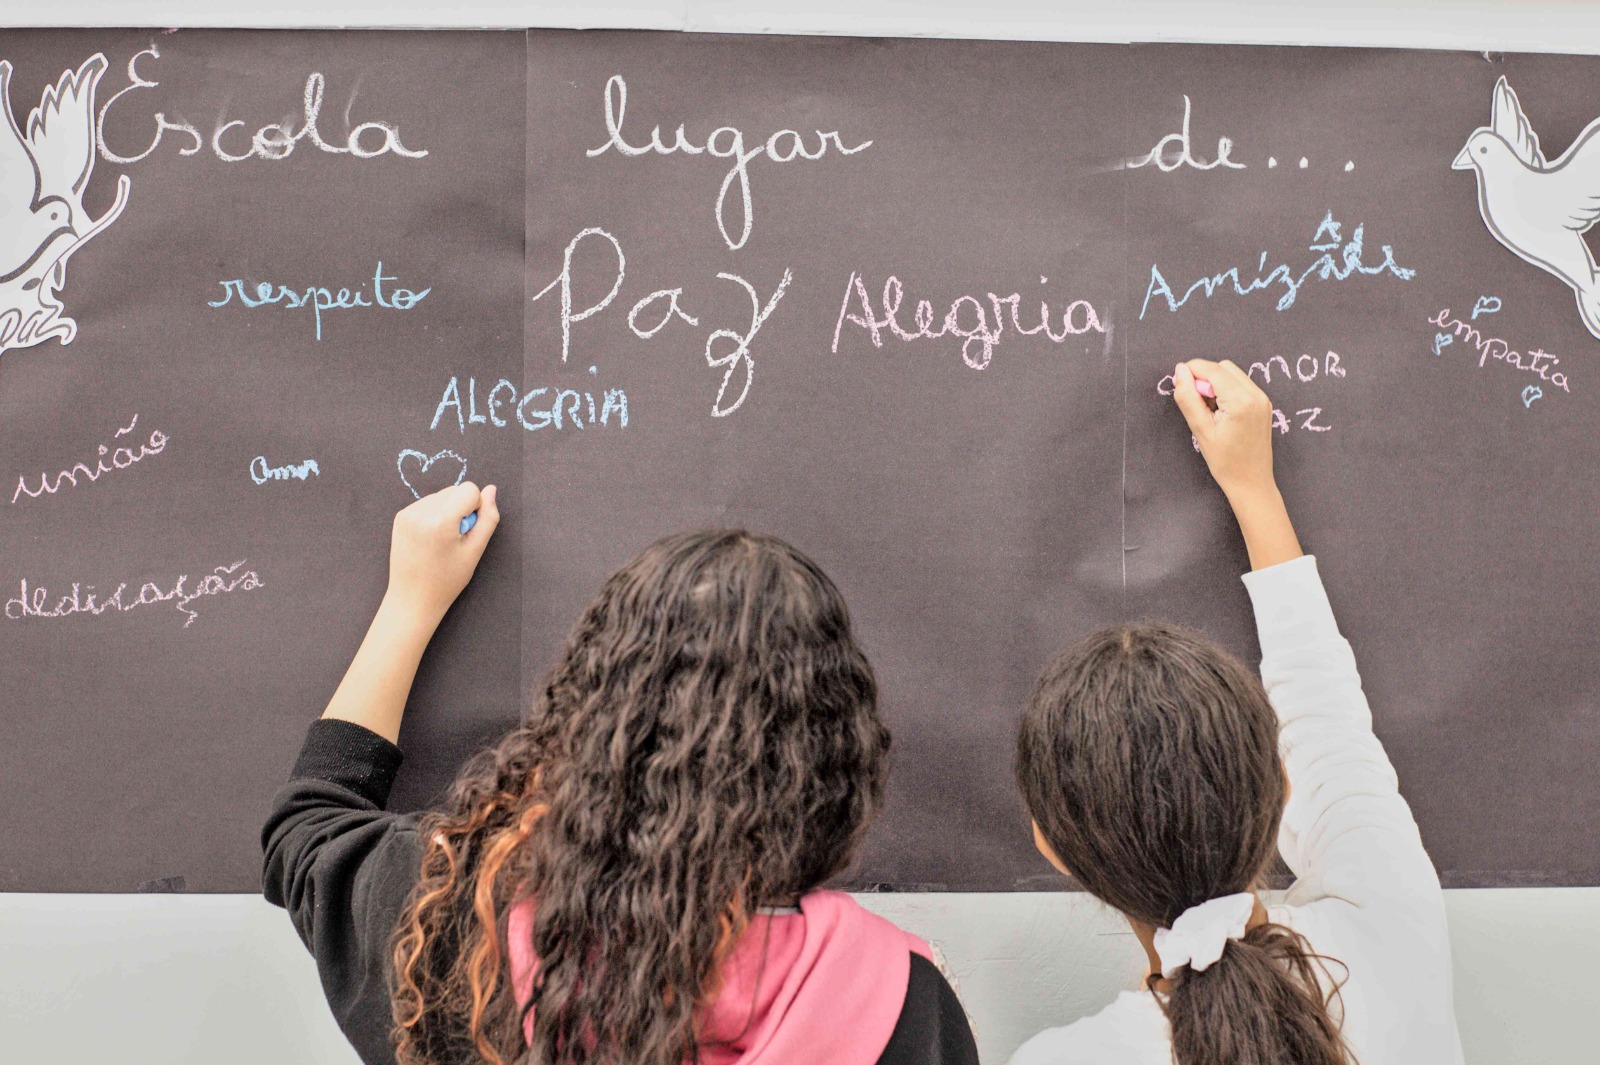 Escola lugar de...
respeito Paz Alegria Amizade
empatia
ALEGRIA
amor
PAZ
união
Amor
dedicação
Paz